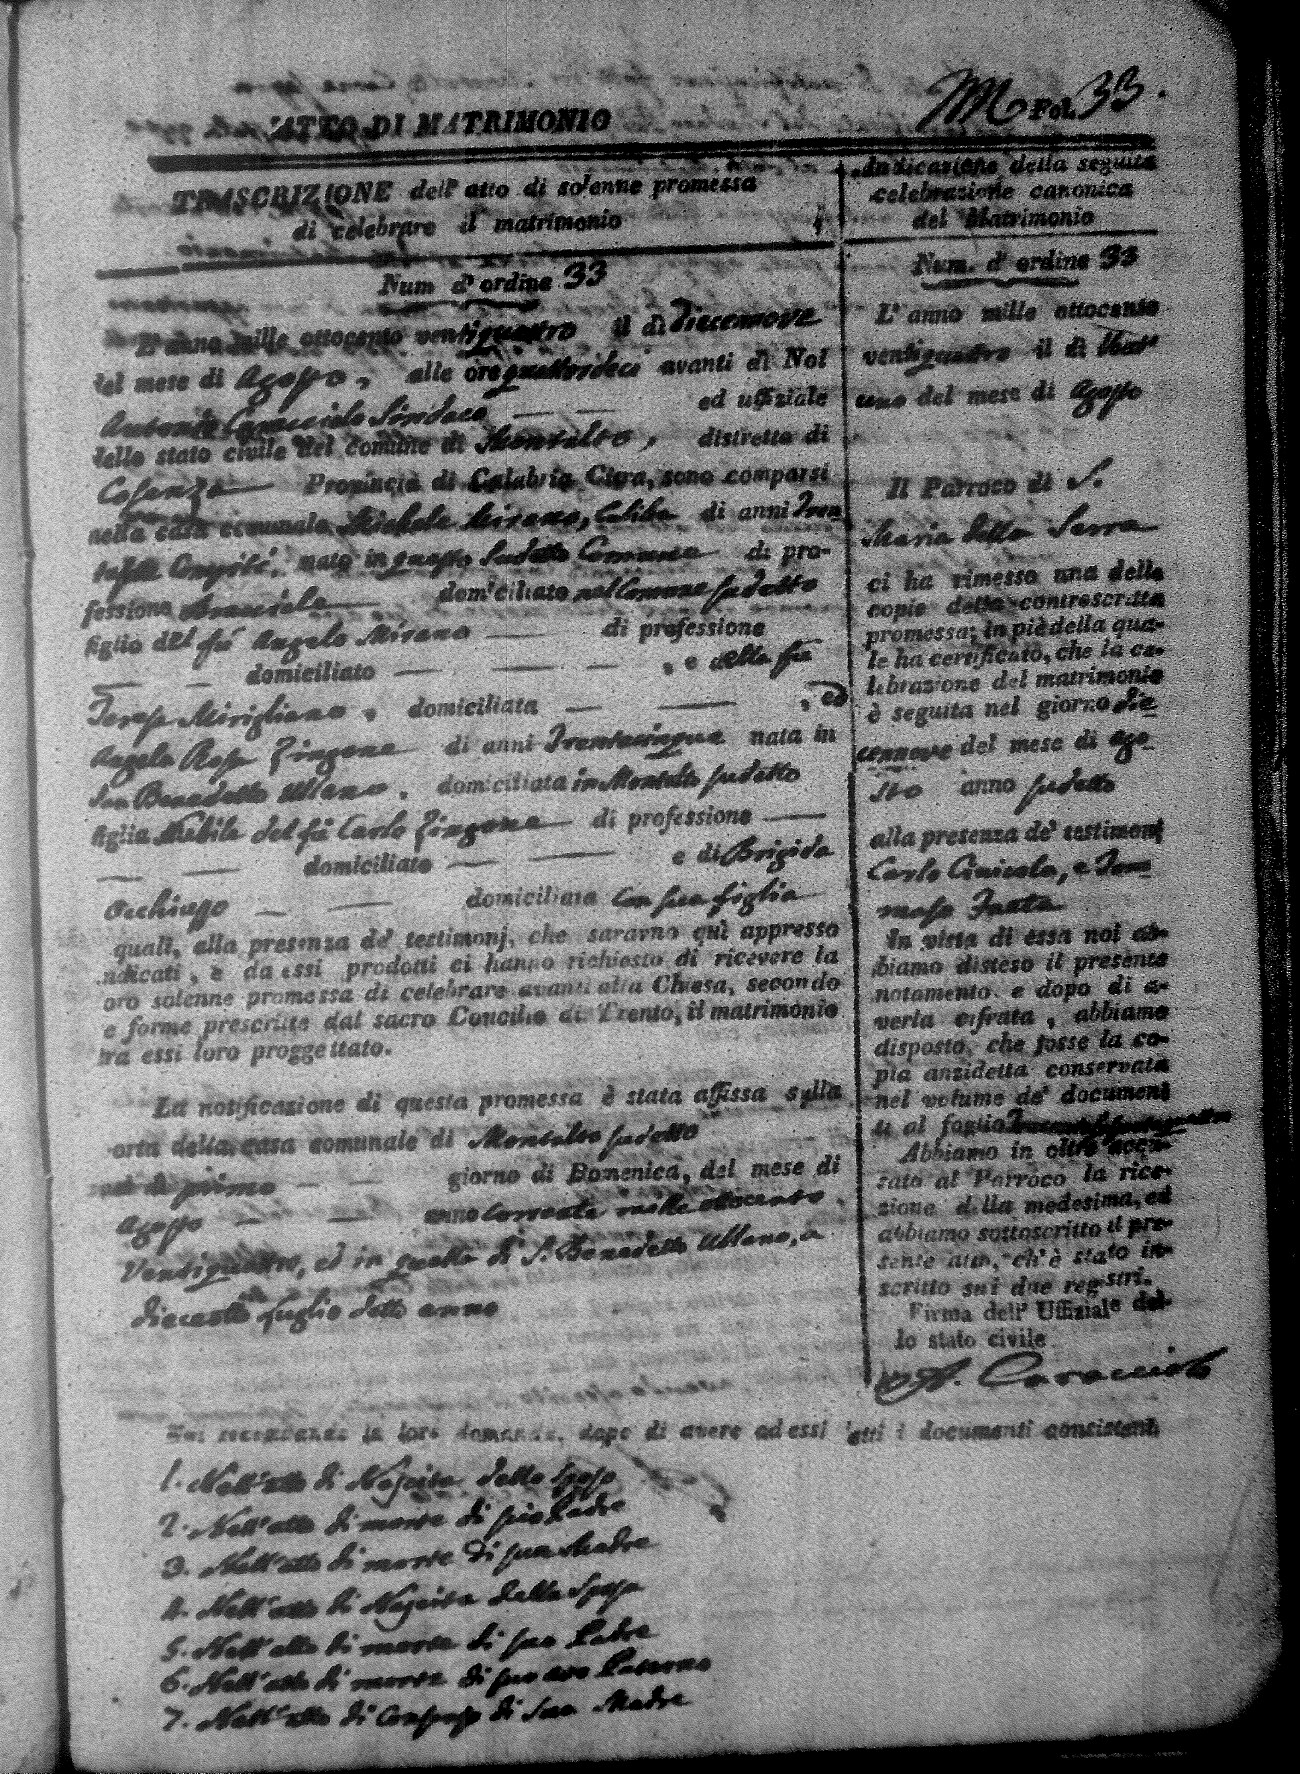 ATTO DI MATRIMONIO
Fol. 33.
TRASCRIZIONE dell' atto di solenne promessa
di celebrare il matrimonio
Num d' ordine 33
L' anno mille ottocento ventiquattro il di diecenove
del mese di Agosto, alle ore quattordeci avanti di Noi
Antonio Caracciolo Sindaco ed uffiziale
dello stato civile del comune di Montalto, distretto di
Cosenza Provincia di Calabria Citra, sono comparsi
nella casa comunale Michele Mirano, Celibe di anni Tren
compiti, nato in questo sudetto Comune di pro-
fessione Bracciale domiciliato nel Comune sudetto
figlio del fù Angelo Mirano di professione
domiciliato , e della fù
Teresa Mirigliano, domiciliata , ed
Angela Rosa Zingone di anni Trentacinque nata in
San Benedetto Ullano, domiciliata in Montalto sudetto
figlia Nubile del fù Carlo Zingone di professione
domiciliato e di Brigida
Occhiuzzo domiciliata con sua figlia
quali, alla presenza de' testimonj, che saranno quì appresso
ndicati, e da essi prodotti ci hanno richiesto di ricevere la
oro solenne promessa di celebrare avanti alla Chiesa, secondo
e forme prescritte dal sacro Concilio di Trento, il matrimonio
tra essi loro proggettato.
La notificazione di questa promessa è stata affissa sulla
orta della casa comunale di Montalto sudetto
primo giorno di Domenica, del mese di
Agosto anno corrente mille ottocento
Ventiquattro, ed in quella di S. Benedetto Ullano, a
dieciotto Luglio detto anno
Noi secondando la loro domanda, dopo di avere ad essi letti i documenti consistenti
1. Nell'atto di Nascita dello Sposo
2. Nell'atto di morte di suo Padre
3. Nell'atto di morte di sua Madre
4. Nell'atto di Nascita della Sposa
5. Nell'atto di morte di suo Padre
6. Nell'atto di morte di suo avo Paterno
7. Nell'atto di Consenso di Sua Madre
Indicazione della seguita
celebrazione canonica
del Matrimonio
Num. d' ordine 33
L' anno mille ottocento
ventiquattro il di Vent'
uno del mese di Agosto
Il Parroco di S.
Maria della Serra
ci ha rimesso una delle
copie della controscritta
promessa; in piè della qua-
le ha certificato, che la ce-
lebrazione del matrimonio
è seguita nel giorno die
cennove del mese di ago
sto anno sudetto
alla presenza de' testimonj
Carlo Cinicola, e Tom
maso Fratta
In vista di essa noi ab-
biamo disteso il presente
notamento e dopo di a-
verla cifrata, abbiamo
disposto, che fosse la co-
pia anzidetta conservata
nel volume de' document
ti al foglio
Abbiamo in oltre accu-
sato al Parroco la rice-
zione della medesima, ed
abbiamo sottoscritto il pre-
sente atto, ch'è stato in-
scritto sui due registri.
Firma dell' Uffiziale del-
lo stato civile
A. Caracciolo